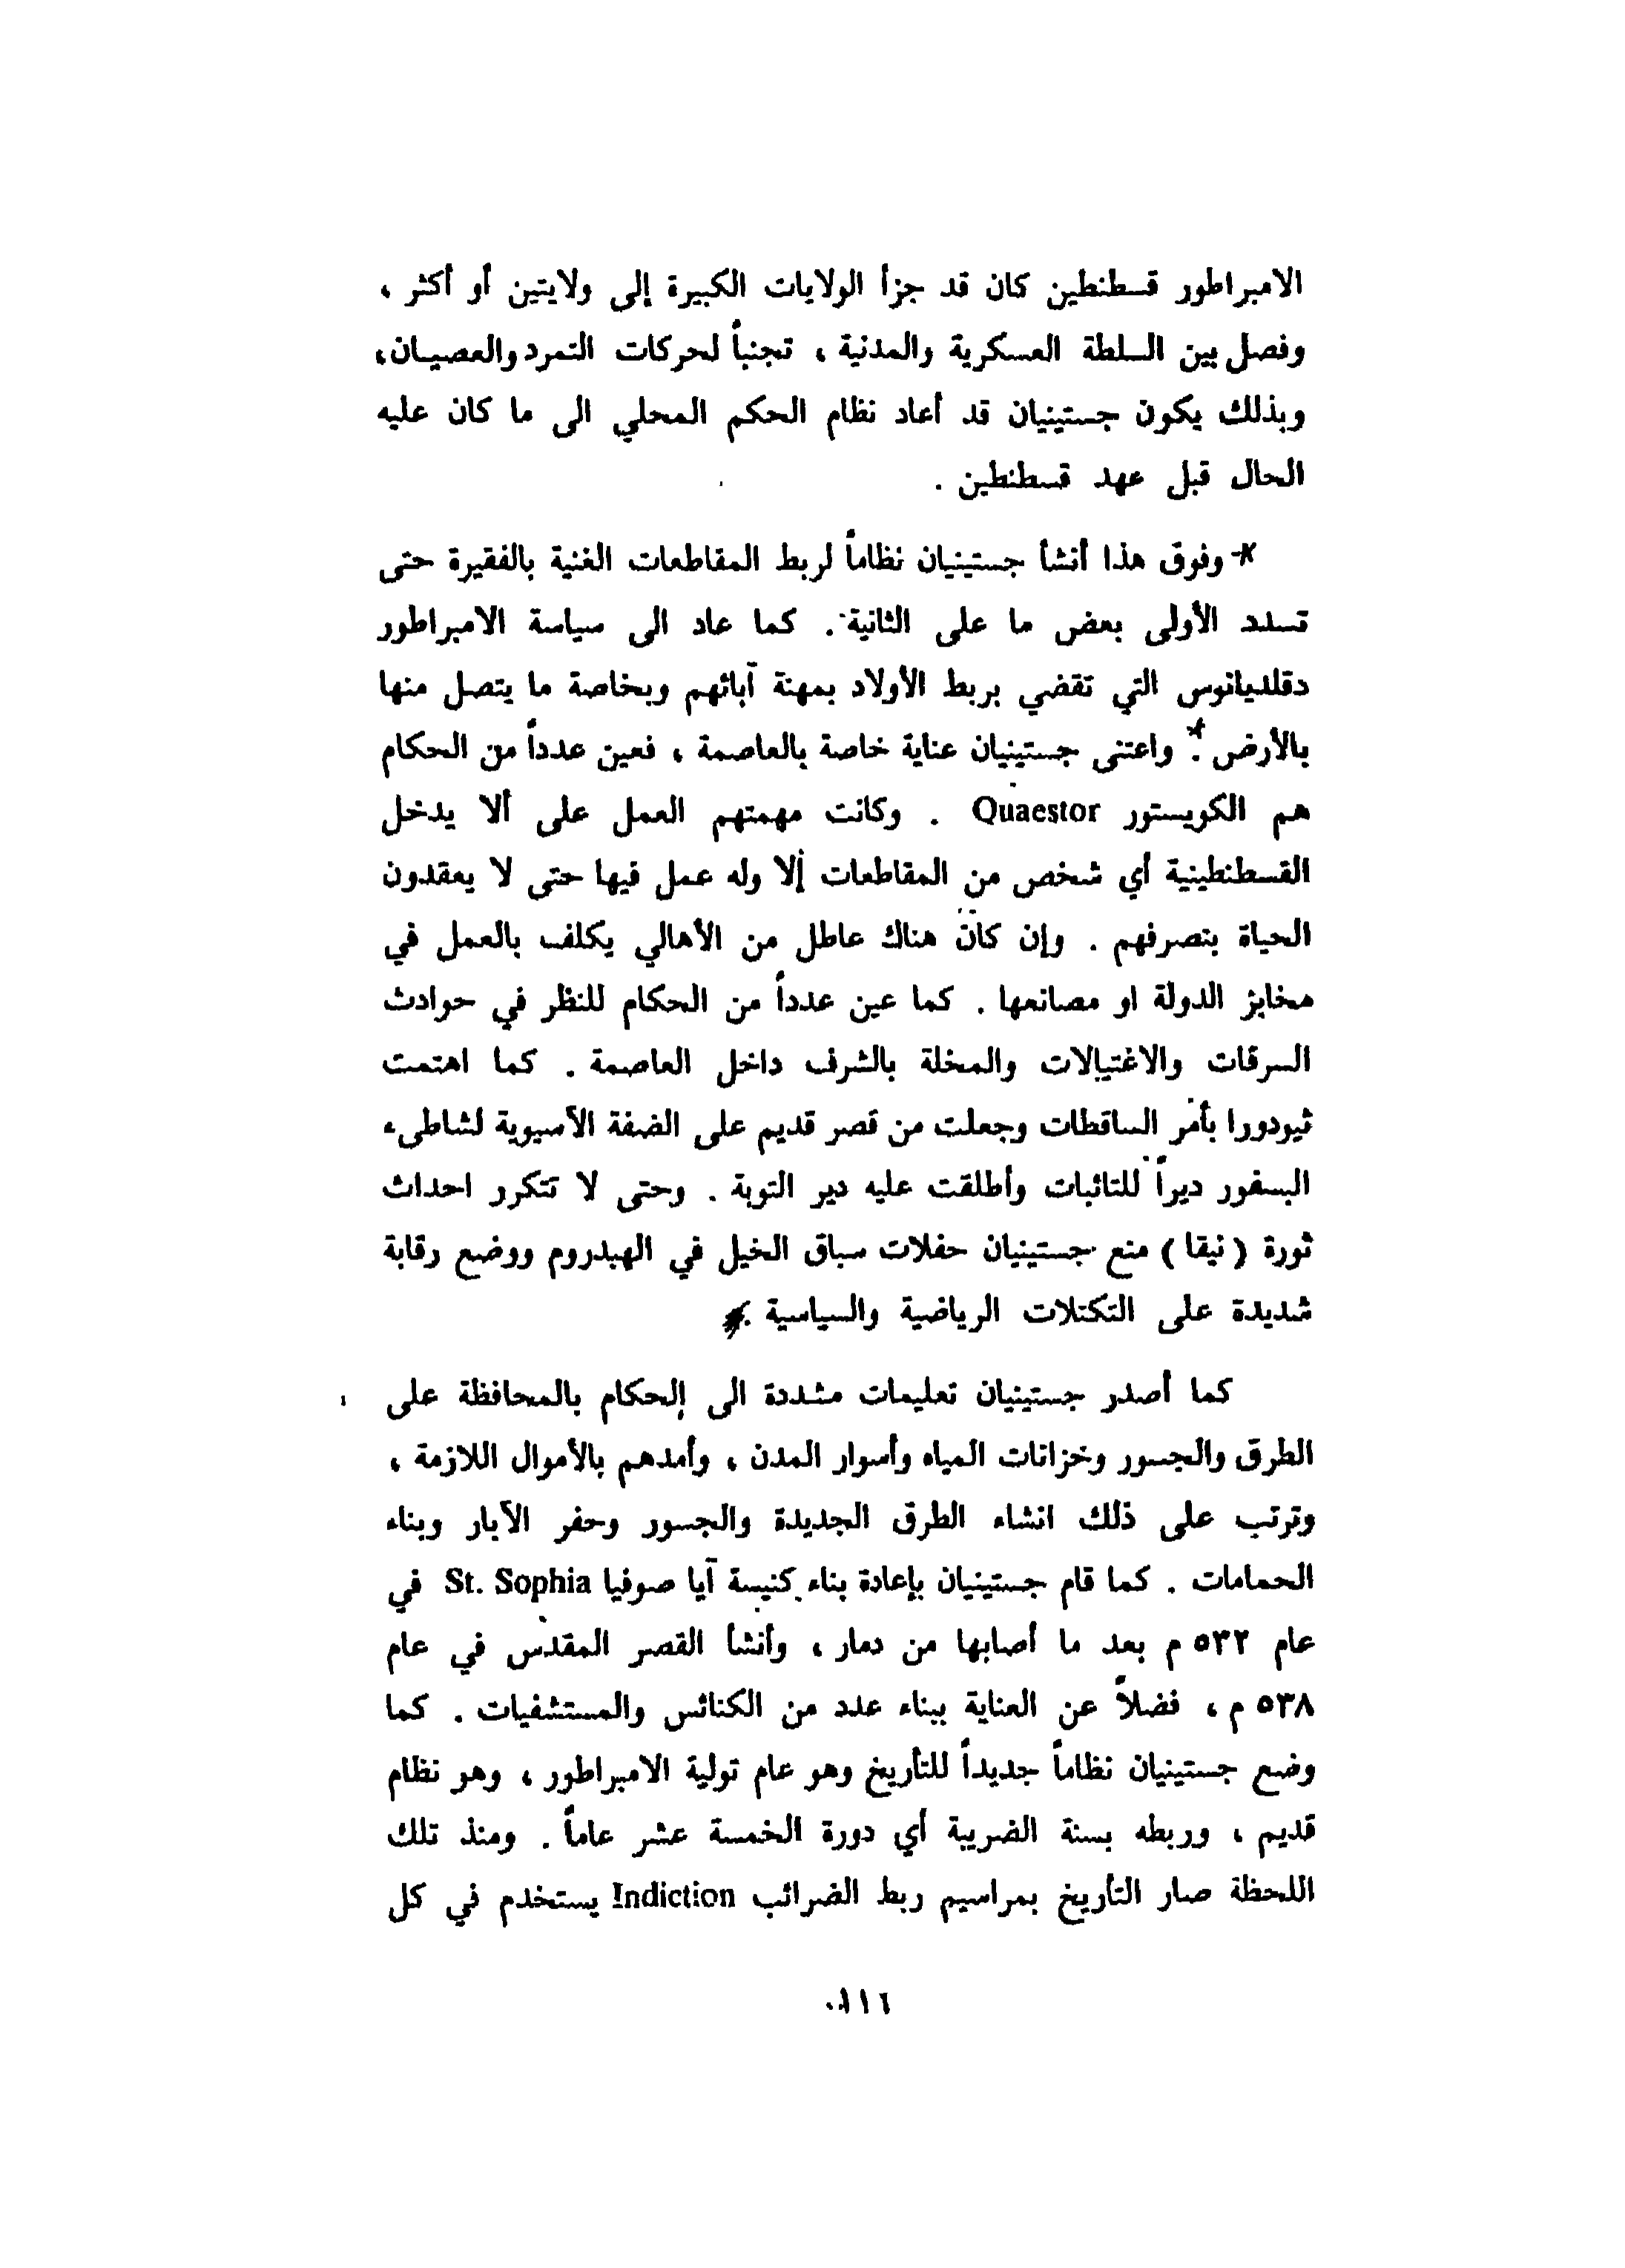 الامبراطور قسطنطين كان قد جزأ الولايات الكبيرة إلى ولايتين أو أكثر ،
وفصل بين السلطة العسكرية والمدنية ، تجنباً لحركات التمرد والعصيان،
وبذلك يكون جستينيان قد أعاد نظام الحكم المحلي الى ما كان عليه
الحال قبل عهد قسطنطين .
* وفوق هذا أنشأ جستينيان نظاماً لربط المقاطعات الغنية بالفقيرة حتى
تسدد الأولى بعض ما على الثانية . كما عاد الى سياسة الامبراطور
دقلديانوس التي تقضي بربط الأولاد بمهنة آبائهم وبخاصة ما يتصل منها
بالأرض .* واعتنى جستينيان عناية خاصة بالعاصمة ، فعين عدداً من الحكام
هم الكويستور Quaestor . وكانت مهمتهم العمل على ألا يدخل
القسطنطينية أي شخص من المقاطعات إلا وله عمل فيها حتى لا يعقدون
الحياة بتصرفهم . وإن كان هناك عاطل من الأهالي يكلف بالعمل في
مخابز الدولة او مصانعها . كما عين عدداً من الحكام للنظر في حوادث
السرقات والاغتيالات والمخلة بالشرف داخل العاصمة . كما اهتمت
ثيودورا بأمر الساقطات وجعلت من قصر قديم على الضفة الآسيوية لشاطىء
البسفور ديراً للتائبات وأطلقت عليه دير التوبة . وحتى لا تتكرر احداث
ثورة ( نيقا ) منع جستينيان حفلات سباق الخيل في الهبدروم ووضع رقابة
شديدة على التكتلات الرياضية والسياسية .*
كما أصدر جستينيان تعليمات مشددة الى الحكام بالمحافظة على
الطرق والجسور وخزانات المياه وأسوار المدن ، وأمدهم بالأموال اللازمة ،
وترتب على ذلك انشاء الطرق الجديدة والجسور وحفر الآبار وبناء
الحمامات . كما قام جستينيان بإعادة بناء كنيسة آيا صوفيا St. Sophia في
عام ٥٣٢ م بعد ما أصابها من دمار ، وأنشأ القصر المقدس في عام
٥٣٨ م ، فضلاً عن العناية ببناء عدد من الكنائس والمستشفيات . كما
وضع جستينيان نظاماً جديداً للتأريخ وهو عام تولية الامبراطور ، وهو نظام
قديم ، وربطه بسنة الضريبة أي دورة الخمسة عشر عاماً . ومنذ تلك
اللحظة صار التأريخ بمراسيم ربط الضرائب Indiction يستخدم في كل
١١٦